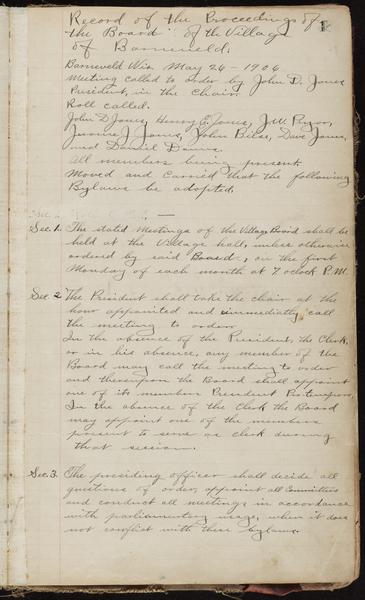 1
Record of the Proceedings of
the Board of the Village
of Barneveld.
Barneveld Wis May 26 - 1906
Meeting called to order by John D. Jones
President, in the Chair.
Roll called.
John D Jones, Henry E. Jones, J.W. Pryor,
J. Jones, John Bilse, Dave Jones,
and Daniel
All members being present
Moved and Carried that the following
Bylaws be adopted.
Sec. 1. The stated Meetings of the Village Board shall be
held at the Village hall, unless otherwise
ordered by said Board, on the first
Monday of each month at 7 oclock P.M.
Sec 2 The President shall take the chair at the
hour appointed and immediately call
the meeting to order
In the absence of the President, the Clerk,
or in his absence, any member of the
Board may call the meeting to order
and thereupon the Board shall appoint
one of its members President Pro tempore,
In the absence of the Clerk the Board
may appoint one of the members
present to serve as clerk during
that session.
Sec. 3. The presiding officer shall decide all
questions of order, appoint all Committees
and conduct all meetings in accordance
with parliamentary usage, when it does
not conflict with these bylaws.